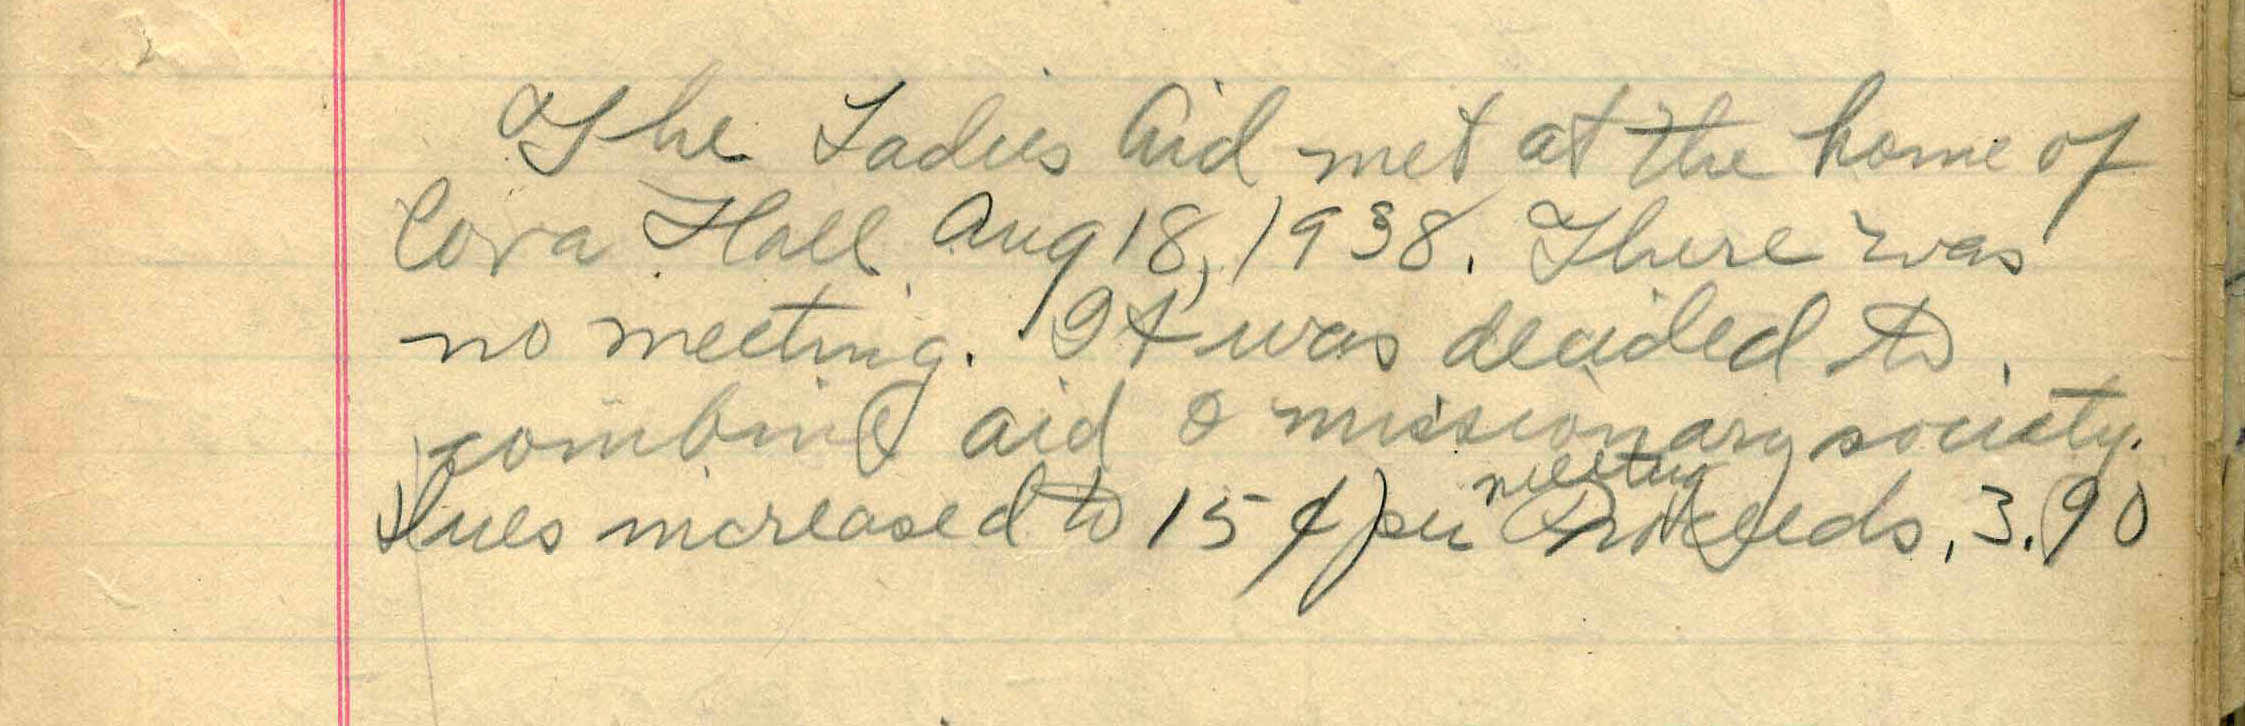 The Ladies Aid met at the home of
Cora Hall Aug 18, 1938. There was
no meeting. It was decided to
combine aid & missionary society.
Dues increased to 15¢ per meeting Proceeds, 3.90